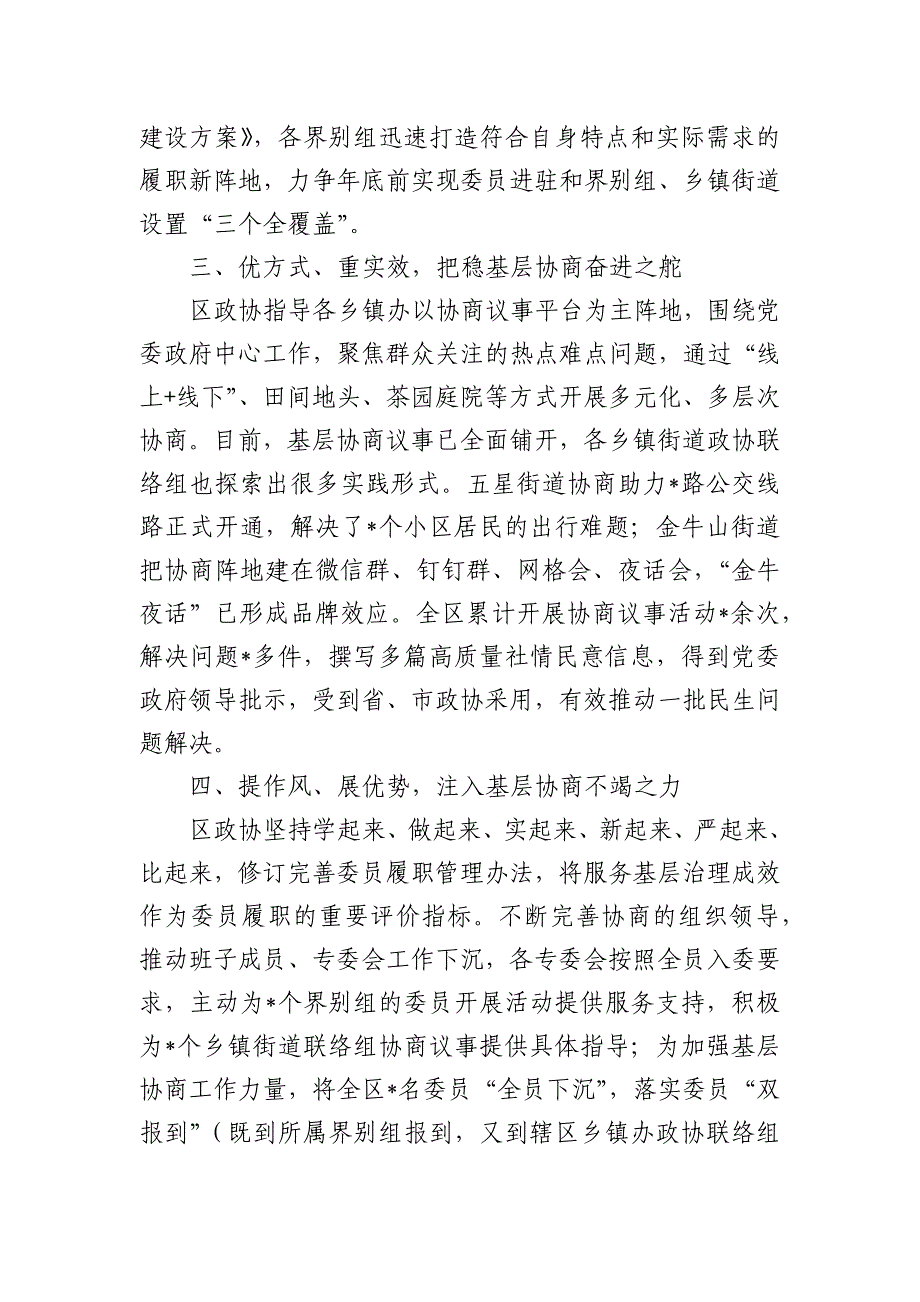 建设方案》，各界别组迅速打造符合自身特点和实际需求的
履职新阵地，力争年底前实现委员进驻和界别组、乡镇街道
设置“三个全覆盖”。
三、优方式、重实效，把稳基层协商奋进之舵
区政协指导各乡镇办以协商议事平台为主阵地，围绕党
委政府中心工作，聚焦群众关注的热点难点问题，通过“线
上+线下”、田间地头、茶园庭院等方式开展多元化、多层次
协商。目前，基层协商议事已全面铺开，各乡镇街道政协联
络组也探索出很多实践形式。五星街道协商助力*路公交线
路正式开通，解决了*个小区居民的出行难题；金牛山街道
把协商阵地建在微信群、钉钉群、网格会、夜话会，“金牛
夜话”已形成品牌效应。全区累计开展协商议事活动*余次，
解决问题*多件，撰写多篇高质量社情民意信息，得到党委
政府领导批示，受到省、市政协采用，有效推动一批民生问
题解决。
四、提作风、展优势，注入基层协商不竭之力
区政协坚持学起来、做起来、实起来、新起来、严起来、
比起来，修订完善委员履职管理办法，将服务基层治理成效
作为委员履职的重要评价指标。不断完善协商的组织领导，
推动班子成员、专委会工作下沉，各专委会按照全员入委要
求，主动为*个界别组的委员开展活动提供服务支持，积极
为*个乡镇街道联络组协商议事提供具体指导；为加强基层
协商工作力量，将全区*名委员“全员下沉”，落实委员“双
报到”（既到所属界别组报到，又到辖区乡镇办政协联络组